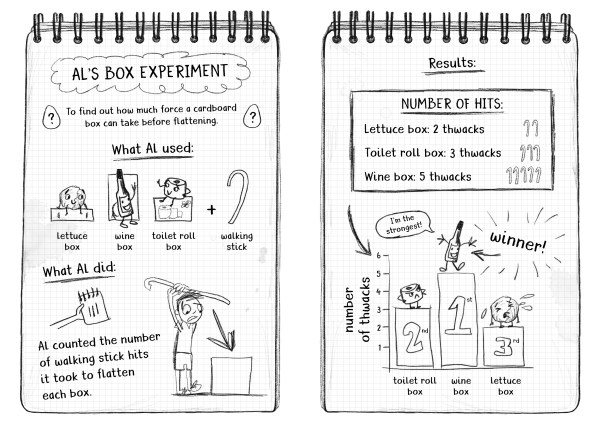 AL'S BOX EXPERIMENT
? To find out how much force a cardboard ?
box can take before flattening.
What Al used:
+
lettuce box
wine box
toilet roll box
walking stick
What Al did:
Al counted the number
of walking stick hits
it took to flatten
each box.
Results:
NUMBER OF HITS:
Lettuce box: 2 thwacks
Toilet roll box: 3 thwacks
Wine box: 5 thwacks
I'm the
strongest!
winner!
number
of thwacks
6
5
4
3
2
1
2nd
1st
3rd
toilet roll box
wine box
lettuce box